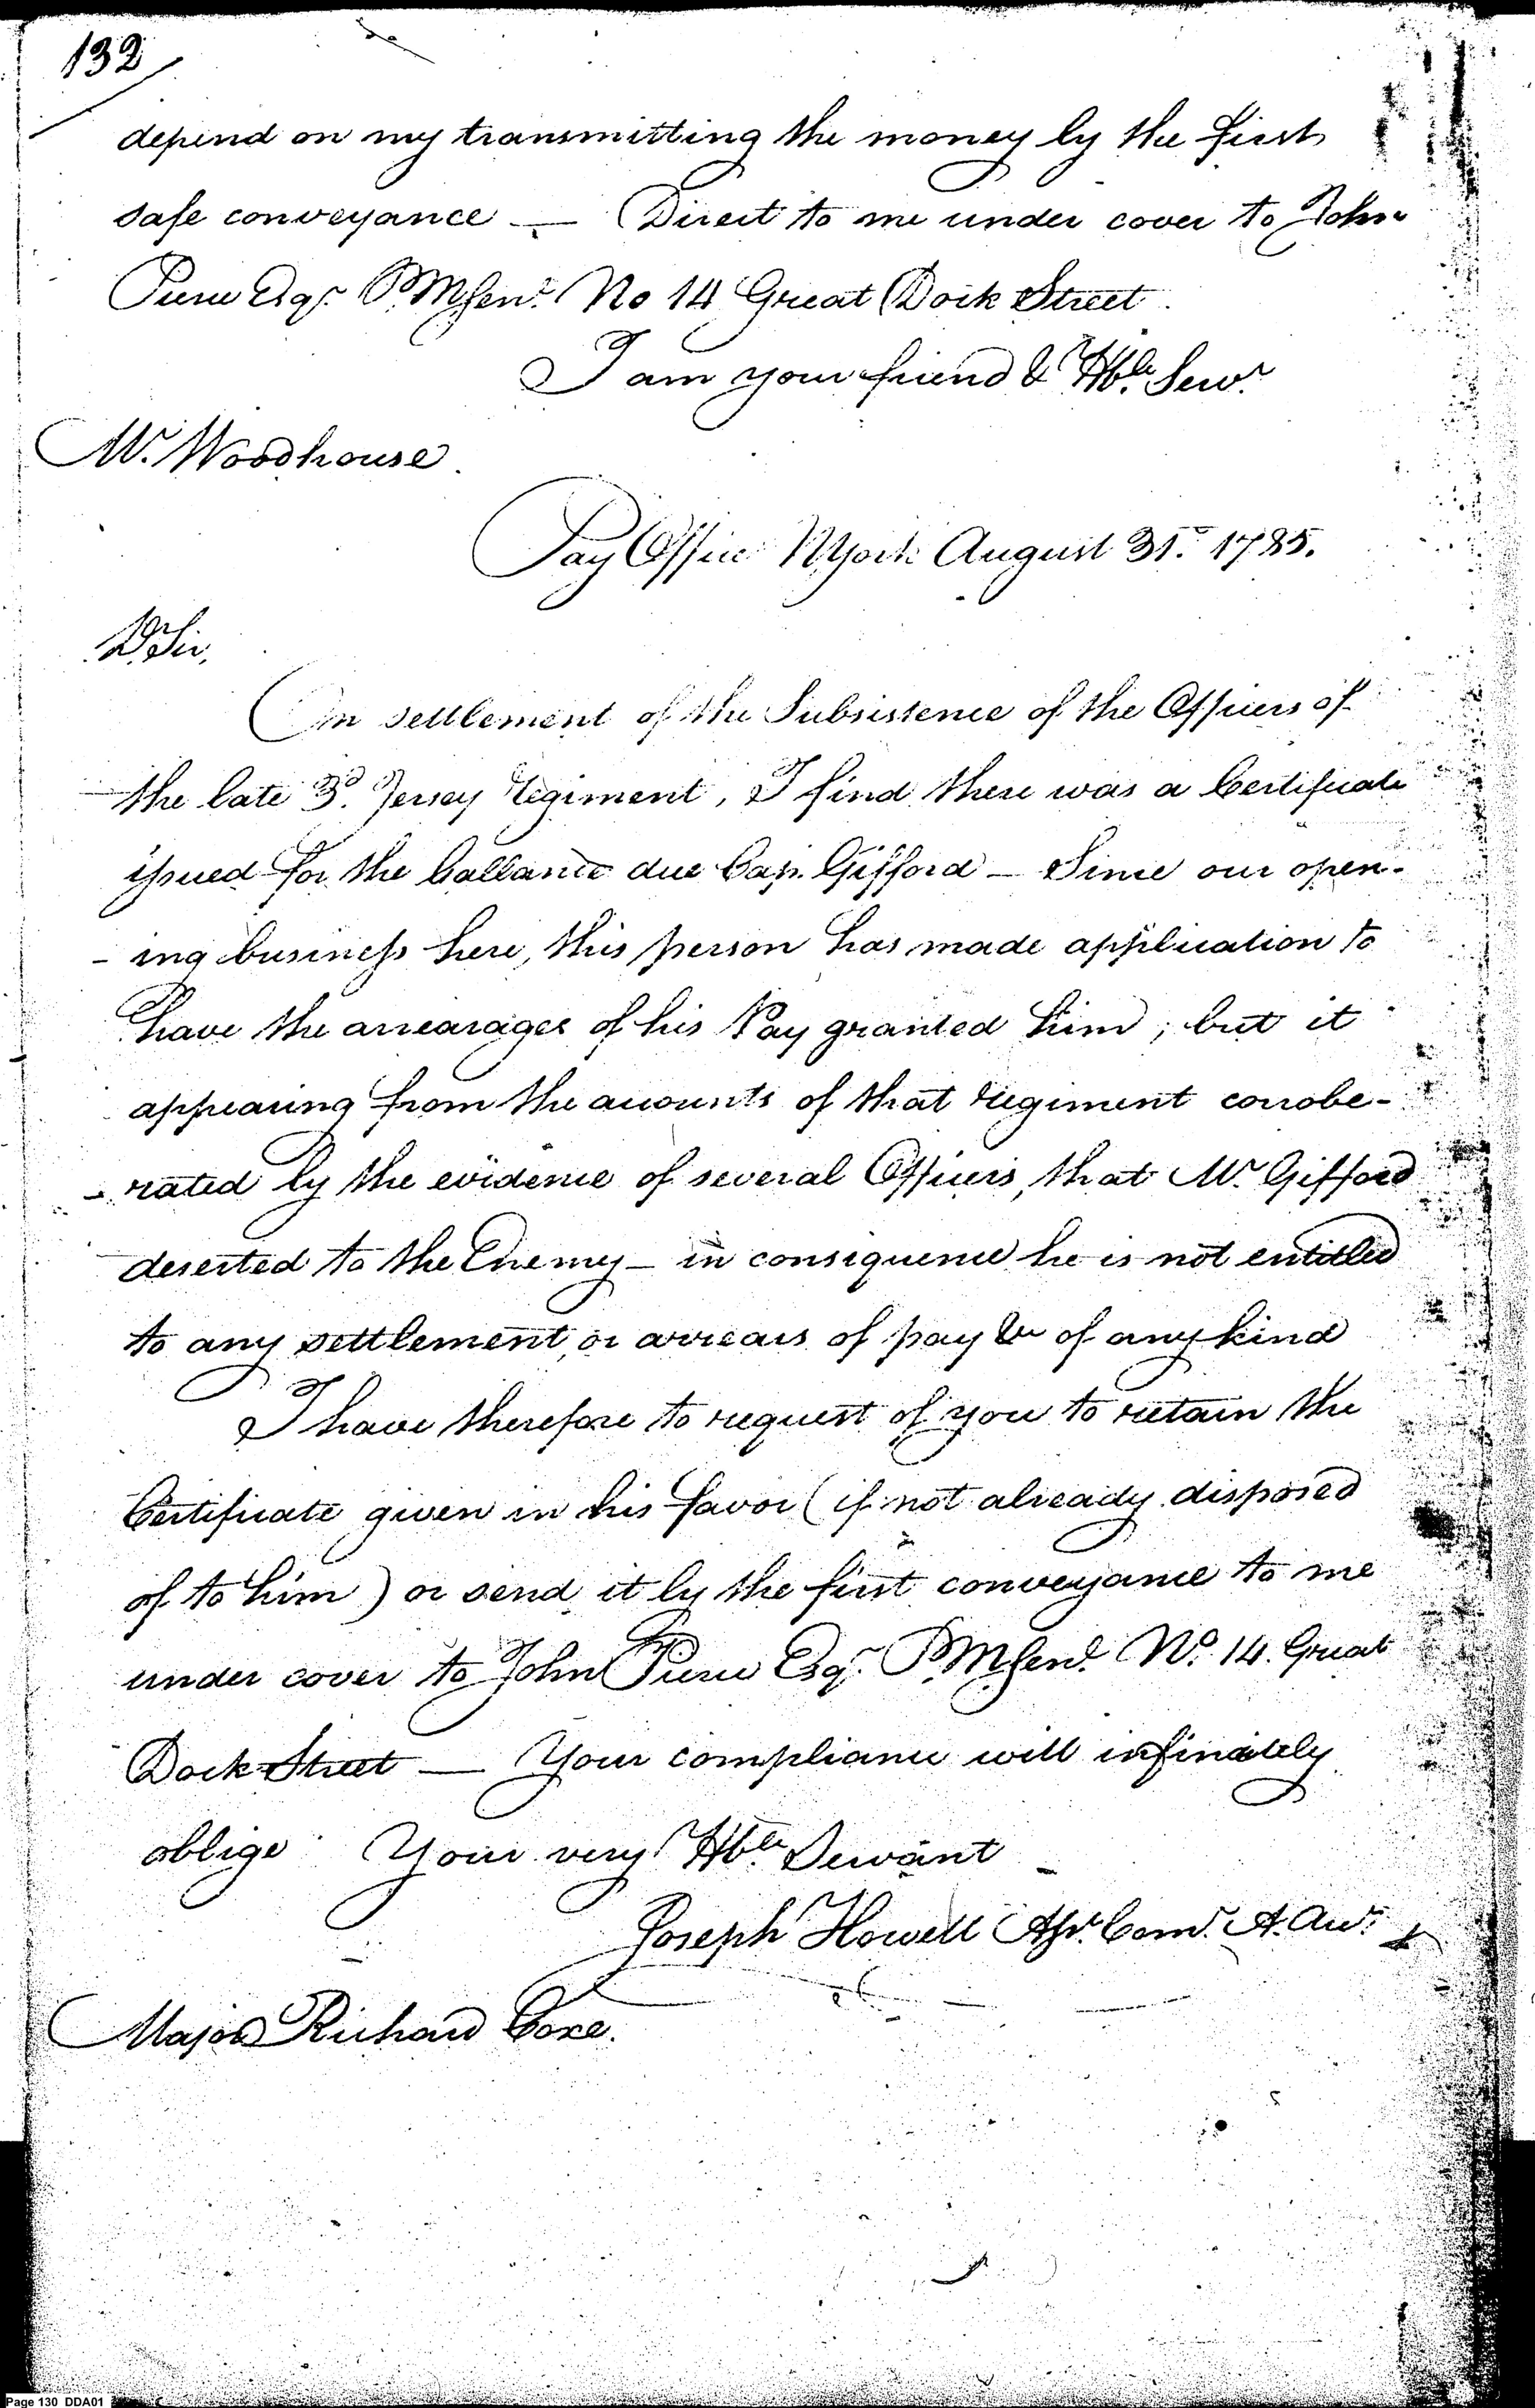 132
depend on my transmitting the money by the first
safe conveyance — Direct to me under cover to John
Pierce Esqr. P.M Genl. No 14 Great Dock Street.
I am your friend & Hble. Servt.
Mr. Woodhouse.
Pay Office NYork August 31st. 1785.
D Sir,
On settlement of the Subsistence of the Officers of
the late 3d. Jersey regiment, I find there was a Certificate
issued for the ballance due Cap. Gifford — Since our open-
- ing business here, this person has made application to
have the arrearages of his Pay granted him; but it
appearing from the accounts of that regiment corrobe-
- rated by the evidence of several Officers, that Mr. Gifford
deserted to the Enemy — in consiquence he is not entitled
to any settlement, or arrears of pay &c of any kind
I have therefore to request of you to retain the
Certificate given in his favor (if not already disposed
of to him) or send it by the first conveyance to me
under cover to John Pierce Esqr. P.M Genl. No. 14. Great
Dock Street — Your compliance will infinitely
oblige Your very Hble. Servant
Joseph Howell Asst. Comr. A. Accts.
Major Richard Coxe.
Page 130 DDA01